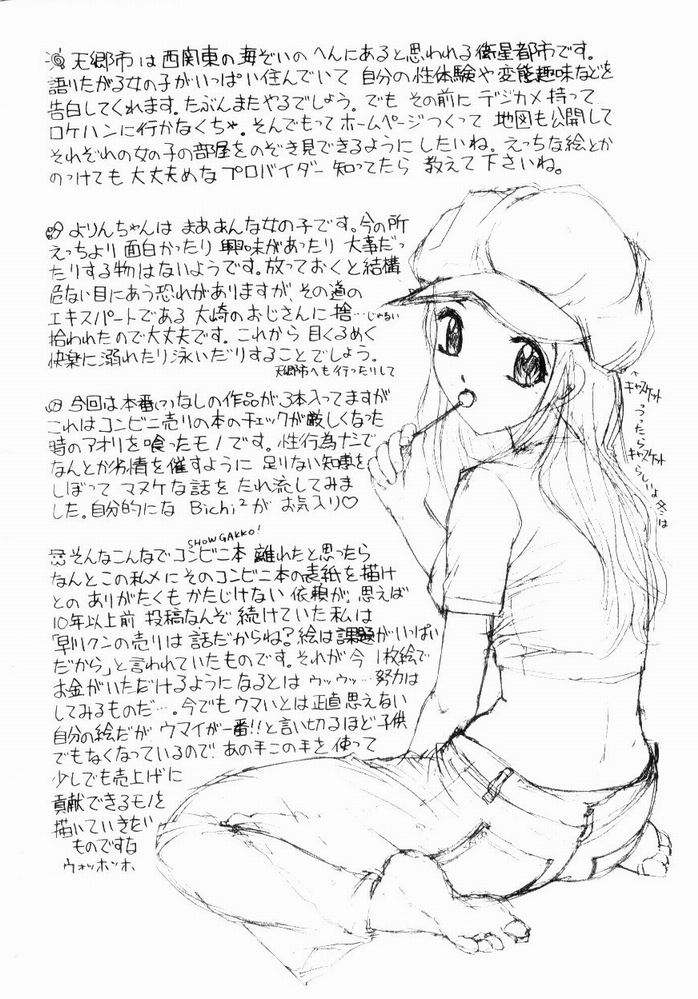 天郷市は西関東の海ぞいのへんにあると思われる衛星都市です。
語りたがる女の子がいっぱい住んでいて 自分の性体験や変態趣味などを
告白してくれます。たぶんまたやるでしょう。でも その前に デジカメ持って
ロケハンに行かなくちゃ。そんでもってホームページつくって 地図も公開して
それぞれの女の子の部屋をのぞき見できるようにしたいね。えっちな絵とか
のっけても大丈夫めなプロバイダー 知ってたら 教えて下さいね。
よりんちゃんは まああんな女の子です。今の所
えっちより 面白かったり 興味があったり 大事だっ
たりする物はないようです。放っておくと結構
危ない目にあう恐れがありますが、その道の
エキスパートである 大崎のおじさんに 捨…じゃない
拾われたので大丈夫です。これから 目くるめく
快楽に溺れたり泳いだりすることでしょう。
天郷市へも行ったりして
今回は本番(?)なしの作品が3本入ってますが
これはコンビニ売りの本のチェックが厳しくなった
時のアオリを喰ったモノです。性行為なしで
なんとか劣情を催すように 足りない知恵を
しぼって マヌケな話を たれ流してみま
した。自分的にな Bichi²が お気入り♡
SHOWGAKKO!
そんなこんなで コンビニ本 離れたと思ったら
なんとこの私メにそのコンビニ本の表紙を描け
との ありがたくもかたじけない 依頼が。思えば
10年以上前 投稿なんぞ 続けていた 私は
「早リクンの売りは 話だからね?絵は課題がいっぱい
だから」と言われていたものです。それが今 1枚絵で
お金がいただけるようになるとは ウッウッ…努力は
してみるものだ…。今でもウマいとは正直思えない
自分の絵だが ウマイが一番!!と言い切るほど子供
でもなくなっているので あの手この手を 使って
少しでも売上げに
貢献できるモノを
描いていきたい
ものですな
ウォッホッホ
キャスケット
うったら
キャスケット
らしいよ冬は